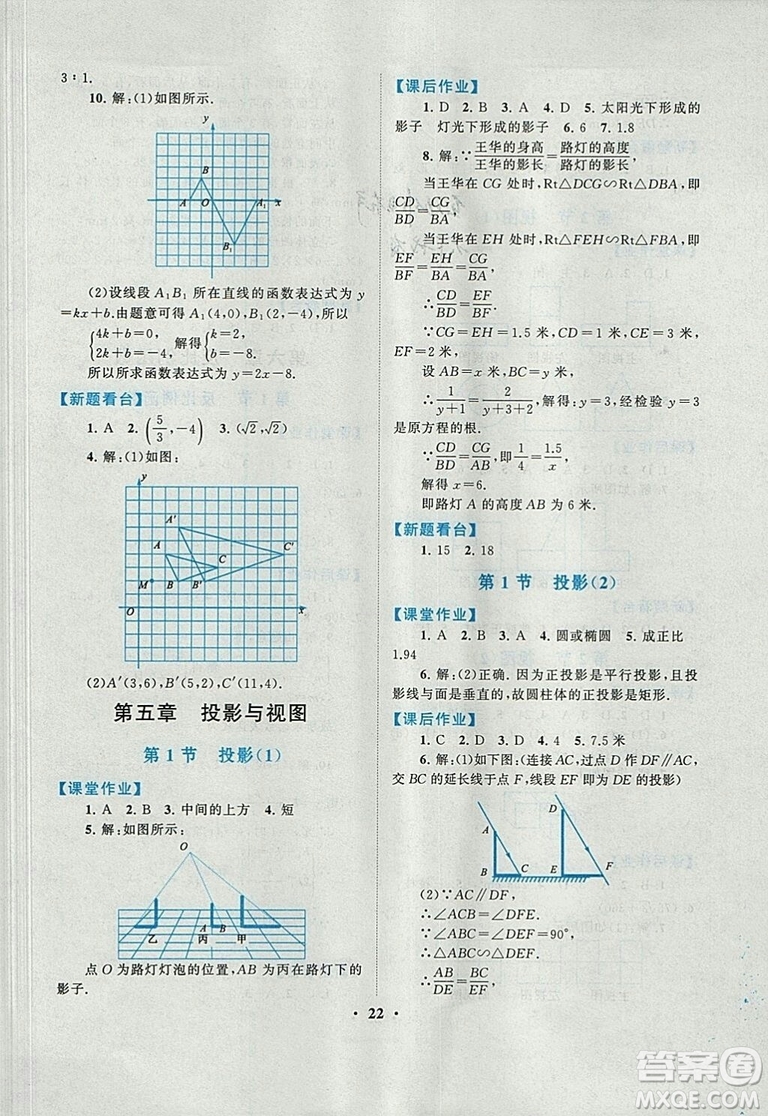 3∶1.
10. 解:(1)如图所示.
y
B
A O x
B₁
(2)设线段 A₁B₁ 所在直线的函数表达式为 y
=kx+b.由题意可得 A₁(4,0),B₁(2,-4),所以
{4k+b=0, 2k+b=-4. 解得{k=2, b=-8.
所以所求函数表达式为 y=2x-8.
【新题看台】
1. A 2. (5/3,-4) 3. (√2,√2)
4. 解:(1)如图:
y
A′
A C′
C
M B B′
O x
(2)A′(3,6),B′(5,2),C′(11,4).
第五章 投影与视图
第1节 投影(1)
【课堂作业】
1. A 2. B 3. 中间的上方 4. 短
5. 解:如图所示:
O
A
B
乙 丙 甲
点 O 为路灯灯泡的位置,AB 为丙在路灯下的
影子.
【课后作业】
1. D 2. B 3. A 4. D 5. 太阳光下形成的
影子 灯光下形成的影子 6. 6 7. 1.8
8. 解:∵王华的身高/王华的影长=路灯的高度/路灯的影长,
当王华在 CG 处时,Rt△DCG∽Rt△DBA,即
CD/BD=CG/AB.
当王华在 EH 处时,Rt△FEH∽Rt△FBA,即
EF/BF=EH/AB=CG/AB.
∴CD/BD=EF/BF.
∵CG=EH=1.5 米,CD=1 米,CE=3 米,
EF=2 米,
设 AB=x,BC=y,
∴1/(y+1)=2/(y+5),解得:y=3,经检验 y=3
是原方程的根.
∵CD/BD=CG/AB,即1/4=1.5/x,
解得 x=6 米.
即路灯 A 的高度 AB 为 6 米.
【新题看台】
1. 15 2. 18
第1节 投影(2)
【课堂作业】
1. A 2. A 3. A 4. 圆或椭圆 5. 成正比
1.94
6. 解:(2)正确. 因为正投影是平行投影,且投
影线与面是垂直的,故圆柱体的正投影是矩形.
【课后作业】
1. C 2. C 3. D 4. 4 5. 7.5 米
6. 解:(1)如下图:(连接 AC,过点 D 作 DF∥AC,
交 BC 的延长线于点 F,线段 EF 即为 DE 的投影)
D
A
B C E F
(2)∵AC∥DF,
∴∠ACB=∠DFE.
∵∠ABC=∠DEF=90°,
∴△ABC∽△DEF.
∴AB/DE=BC/EF,
• 22 •
答案圈
MXQE.COM